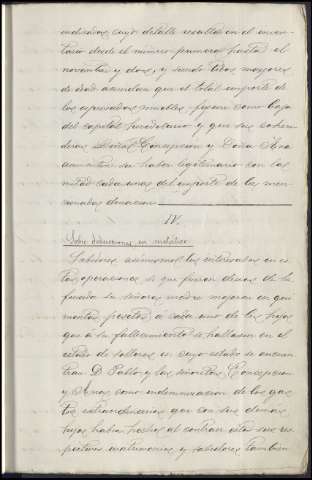 indicados cuyo detalle resulta en el inven-
tario desde el número primero hasta el
noventa y dos, y siendo todos mayores
de edad acuerdan que el total importe de
los expresados muebles figure como baja
del capital hereditario y que sus cohere-
deras Doña Concepcion y Doña Ana
aumenten su haber legitimario con la
mitad cada una del importe de las men-
cionadas donacion
IV.
Sobre deducciones en metálico
Sabedores asimismo los interesados en es-
tas operaciones de que fueron deseos de la
finada su señora madre mejorar en qui-
nientas pesetas a cada uno de los hijos
que a su fallecimiento se hallasen en el
estado de solteros en cuyo estado se encuen-
tran D. Pablo y las señoritas Concepcion
y Ana como indemnizacion de los gas-
tos extraordinarios que con sus demas
hijos habia hecho al contraer estos sus res-
pectivos matrimonios y sabedores tambien